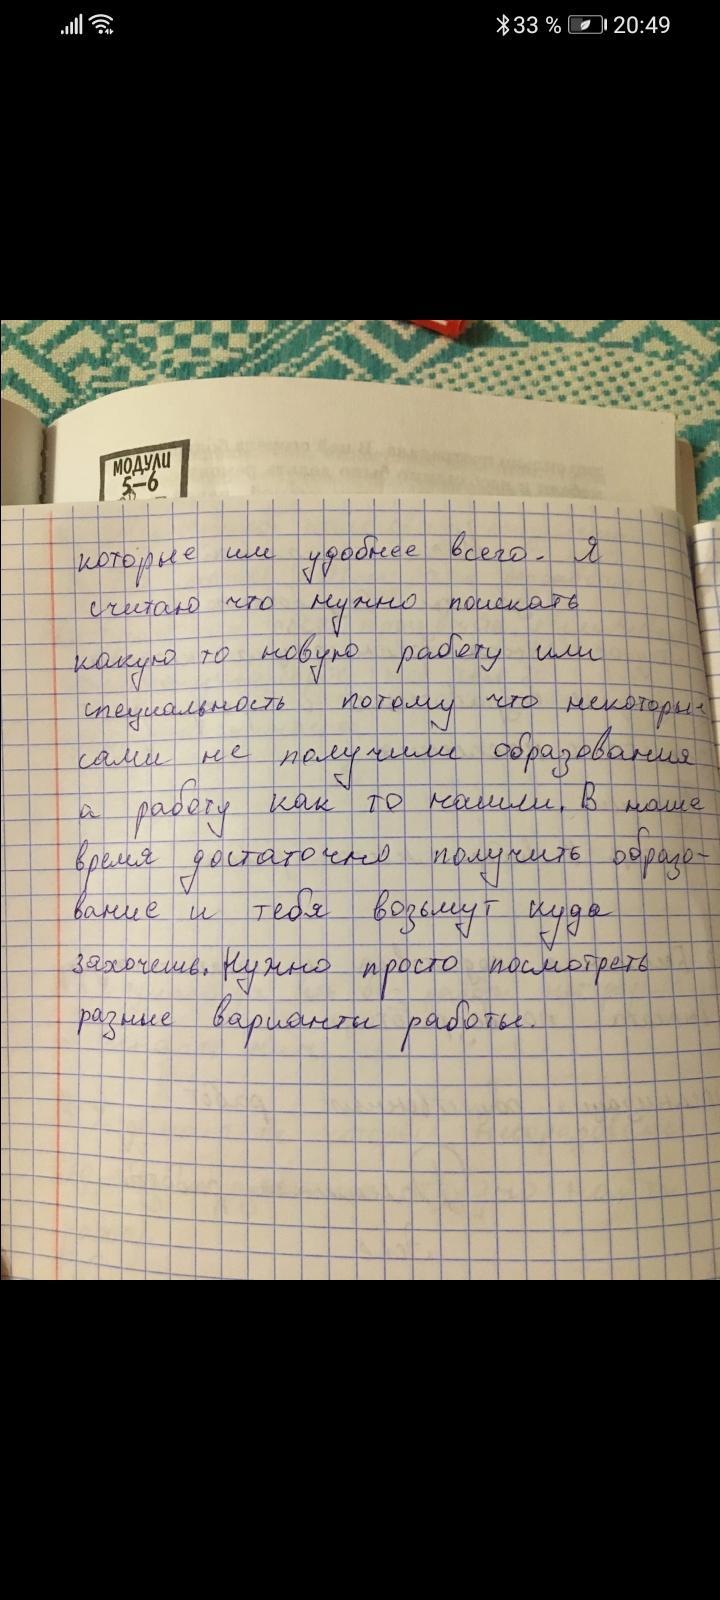 33 % 20:49
МОДУЛИ
5-6
которые им удобнее всего. Я
считаю что нужно поискать
какую то новую работу или
специальность потому что некоторые
сами не получили образования
а работу как то нашли. В наше
время достаточно получить образо-
вание и тебя возьмут куда
захочешь. Нужно просто посмотреть
разные варианты работы.